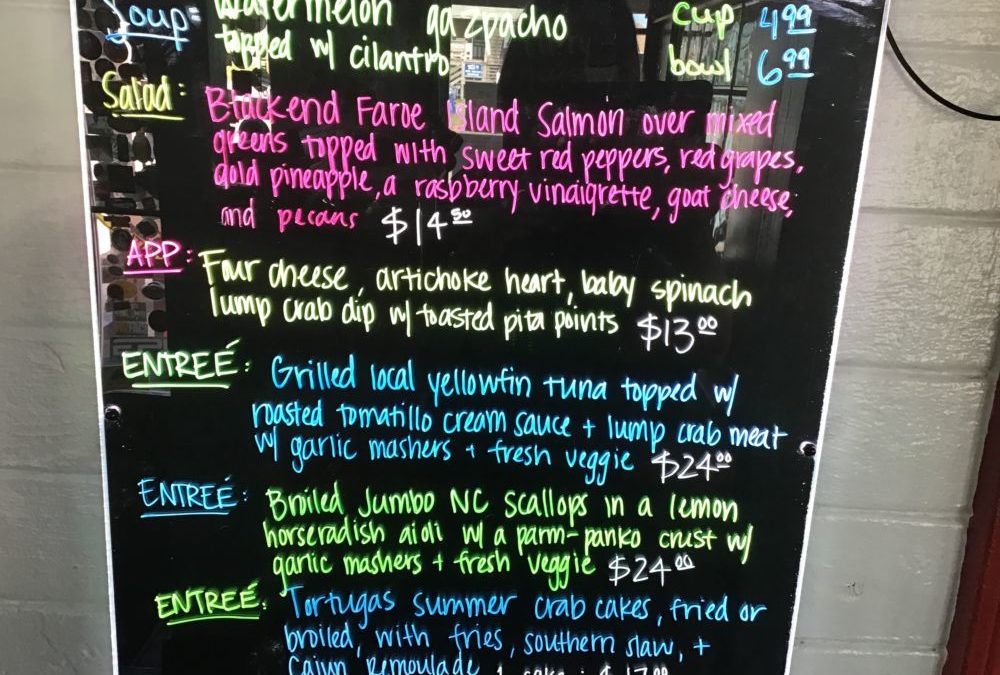 Soup: Watermelon gazpacho cup 4.99
topped w/ cilantro bowl 6.99
Salad: Blackend Faroe Island Salmon over mixed
greens topped with sweet red peppers, red grapes,
gold pineapple, a raspberry vinaigrette, goat cheese,
and pecans $14.50
APP: Four cheese, artichoke heart, baby spinach
lump crab dip w/ toasted pita points $13.00
ENTREÉ: Grilled local yellowfin tuna topped w/
roasted tomatillo cream sauce + lump crab meat
w/ garlic mashers + fresh veggie $24.00
ENTREÉ: Broiled Jumbo NC scallops in a lemon
horseradish aioli w/ a parm-panko crust w/
garlic mashers + fresh veggie $24.00
ENTREÉ: Tortugas summer crab cakes, fried or
broiled, with fries, southern slaw, +
Cajun remoulade 1 cake: $17.00